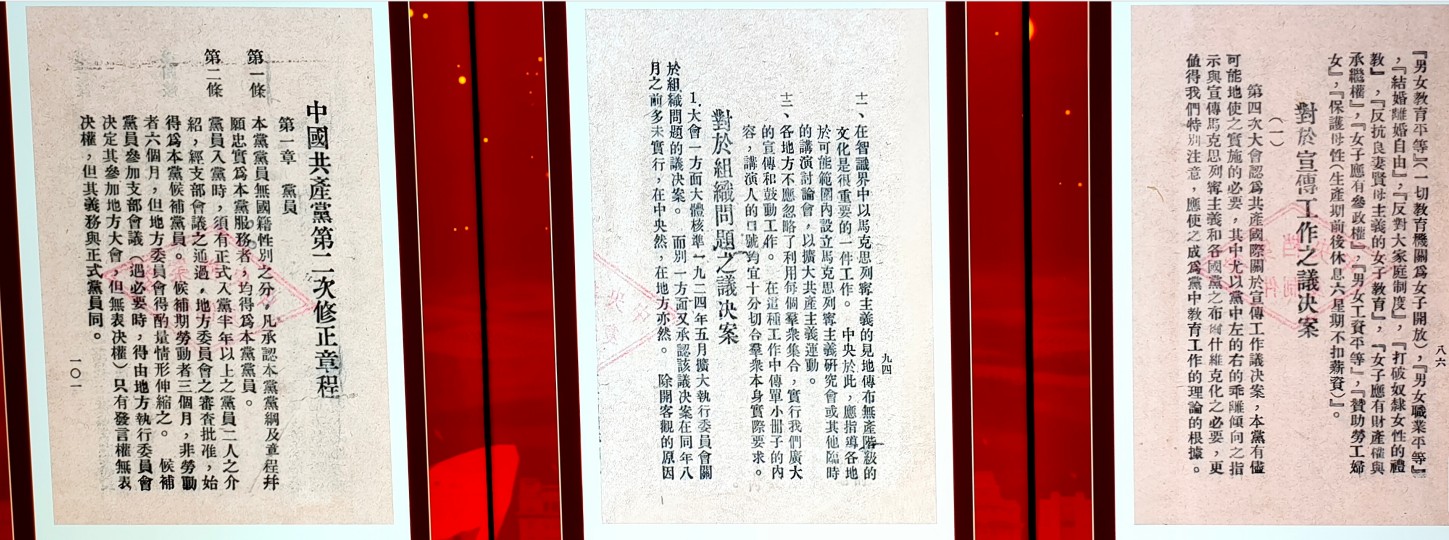 中國共產黨第二次修正章程
第一章　黨員
第一條　本黨黨員無國籍性別之分，凡承認本黨黨綱及章程幷
願忠實爲本黨服務者，均得爲本黨黨員。
第二條　黨員入黨時，須有正式入黨半年以上之黨員二人之介
紹，經支部會議之通過，地方委員會之審查批准，始
得爲本黨候補黨員。候補期勞動者三個月，非勞動
者六個月，但地方委員會得酌量情形伸縮之。　候補
黨員參加支部會議（遇必要時，得由地方執行委員會
決定其參加地方大會，但無表决權）只有發言權無表
决權，但其義務與正式黨員同。
一〇一
九四
十一、在智識界中以馬克思列寗主義的見地傳布無產階級的
文化是很重要的一件工作。　中央於此，應指導各地
於可能範圍內設立馬克思列寗主義研究會或其他臨時
的講演討論會，以擴大共產主義運動。
十二、各地方不應忽略了利用每個羣衆集合，實行我們廣大
的宣傳和鼓動工作。　在這種工作中傳單小冊子的內
容，講演人的口號均宜十分切合羣衆本身實際要求。
對於組織問題之議決案
1.大會一方面大體核準一九二四年五月擴大執行委員會關
於組織問題的議決案。　而別一方面又承認該議决案在同年八
月之前多未實行，在中央然，在地方亦然。　除開客觀的原因
八六
『男女教育平等』（一切教育機關爲女子開放），『男女職業平等』
，『結婚離婚自由』，『反對大家庭制度』，『打破奴隸女性的禮
教』，『反抗良妻賢母主義的女子教育』，『女子應有財產權與
承繼權』，『女子應有參政權』，『男女工資平等』，『贊助勞工婦
女』，『保護母性（生產期前後休息六星期不扣薪資）』。
對於宣傳工作之議决案
（一）
第四次大會認爲共產國際關於宣傳工作議決案，本黨有儘
可能地使之實施的必要，其中尤以黨中左的右的乖離傾向之指
示與宣傳馬克思列寗主義和各國黨之布爾什維克化之必要，更
値得我們特別注意，應使之成爲黨中教育工作的理論的根據。